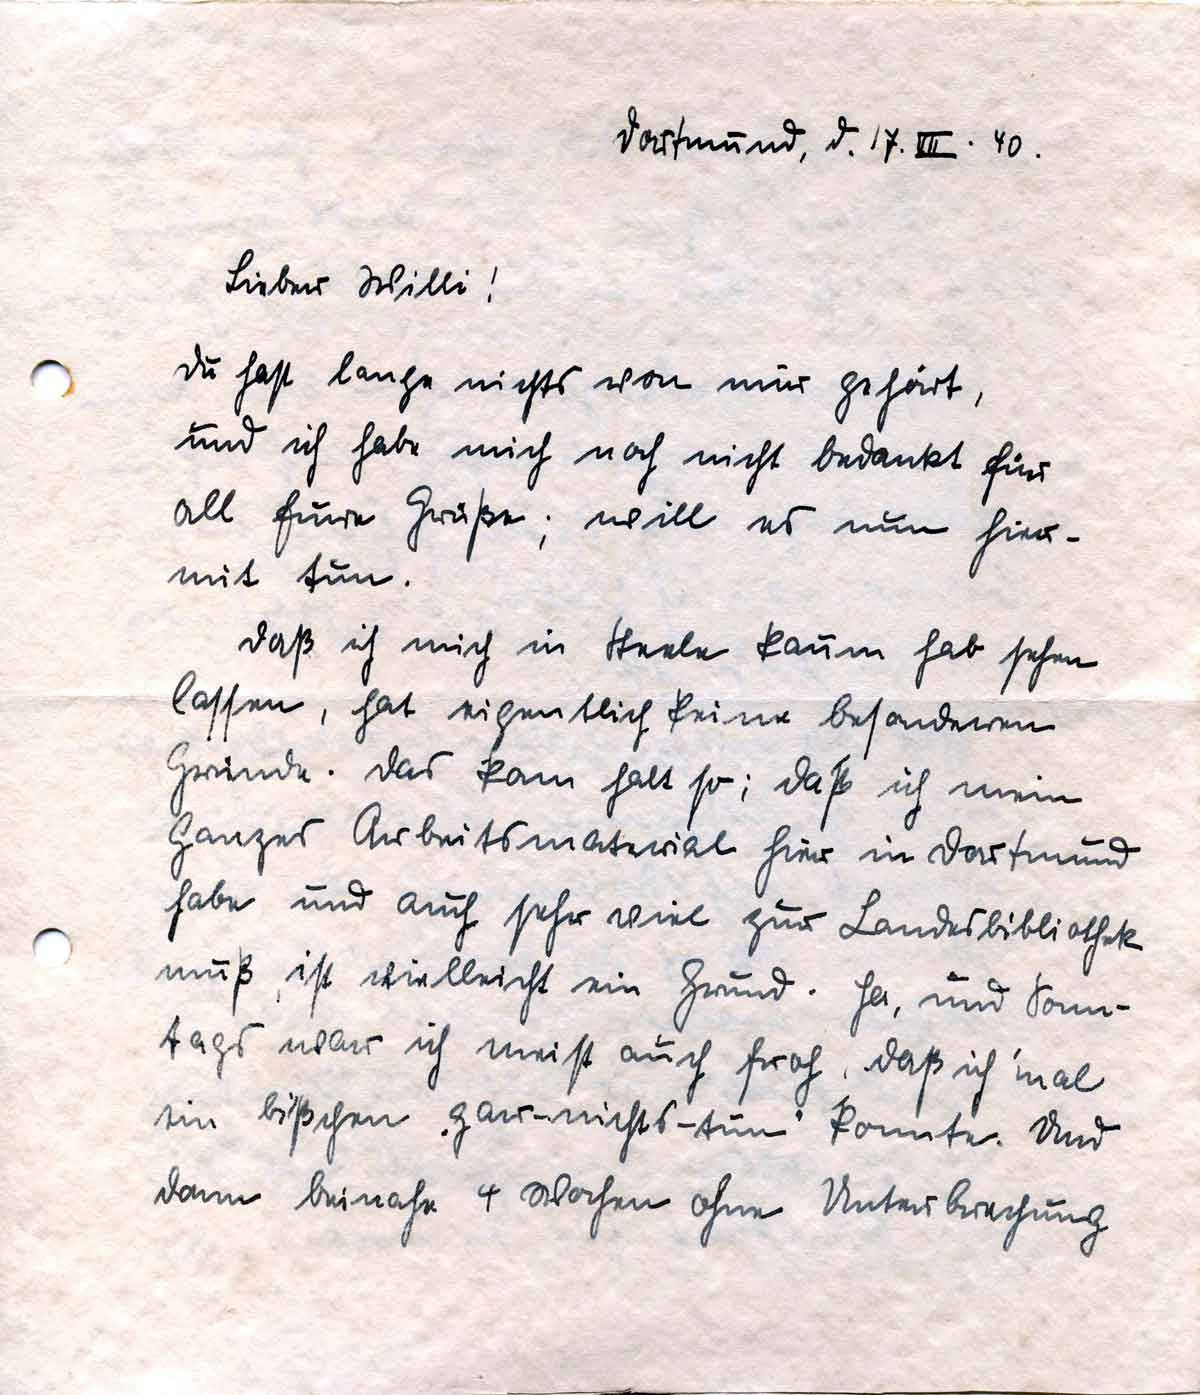 Dortmund, d. 17. VII. 40.
Lieber Willi!
Du hast lange nichts von mir gehört,
und ich habe mich noch nicht bedankt für
all Eure Grüße; will es nun hier-
mit tun.
Daß ich mich in Steele kaum hab sehen
lassen, hat eigentlich keine besonderen
Gründe. Das kam halt so; daß ich mein
ganzes Arbeitsmaterial hier in Dortmund
habe und auch sehr viel zur Landesbibliothek
muß, ist vielleicht ein Grund. Ja, und Sonn-
tags war ich meist auch froh, daß ich 'mal
ein bißchen „gar-nichts-tun“ konnte. Und
dann beinahe 4 Wochen ohne Unterbrechung